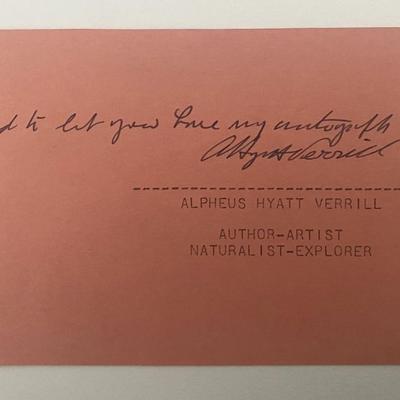 d to let you have my autograph
A Hyatt Verrill
ALPHEUS HYATT VERRILL
AUTHOR-ARTIST
NATURALIST-EXPLORER